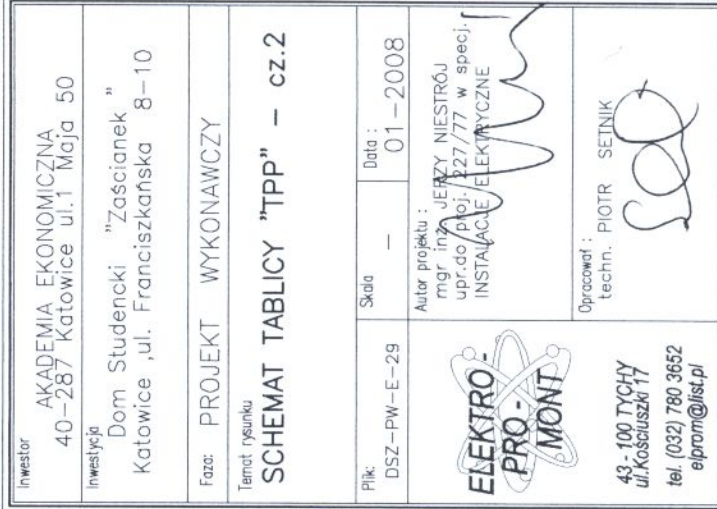 Inwestor
AKADEMIA EKONOMICZNA
40-287 Katowice ul.1 Maja 50
Inwestycja
Dom Studencki "Zaścianek"
Katowice ,ul. Franciszkańska 8-10
Faza: PROJEKT WYKONAWCZY
Temat rysunku
SCHEMAT TABLICY "TPP" – cz.2
Plik:
DSZ-PW-E-29
Skala
–
Data :
01-2008
ELEKTRO-
PRO-
MONT
43 - 100 TYCHY
ul.Kościuszki 17
tel. (032) 780 3652
elprom@list.pl
Autor projektu :
mgr inż. JERZY NIESTRÓJ
upr.do proj. 227/77 w specj.
INSTALACJE ELEKTRYCZNE
Opracował :
techn. PIOTR SETNIK